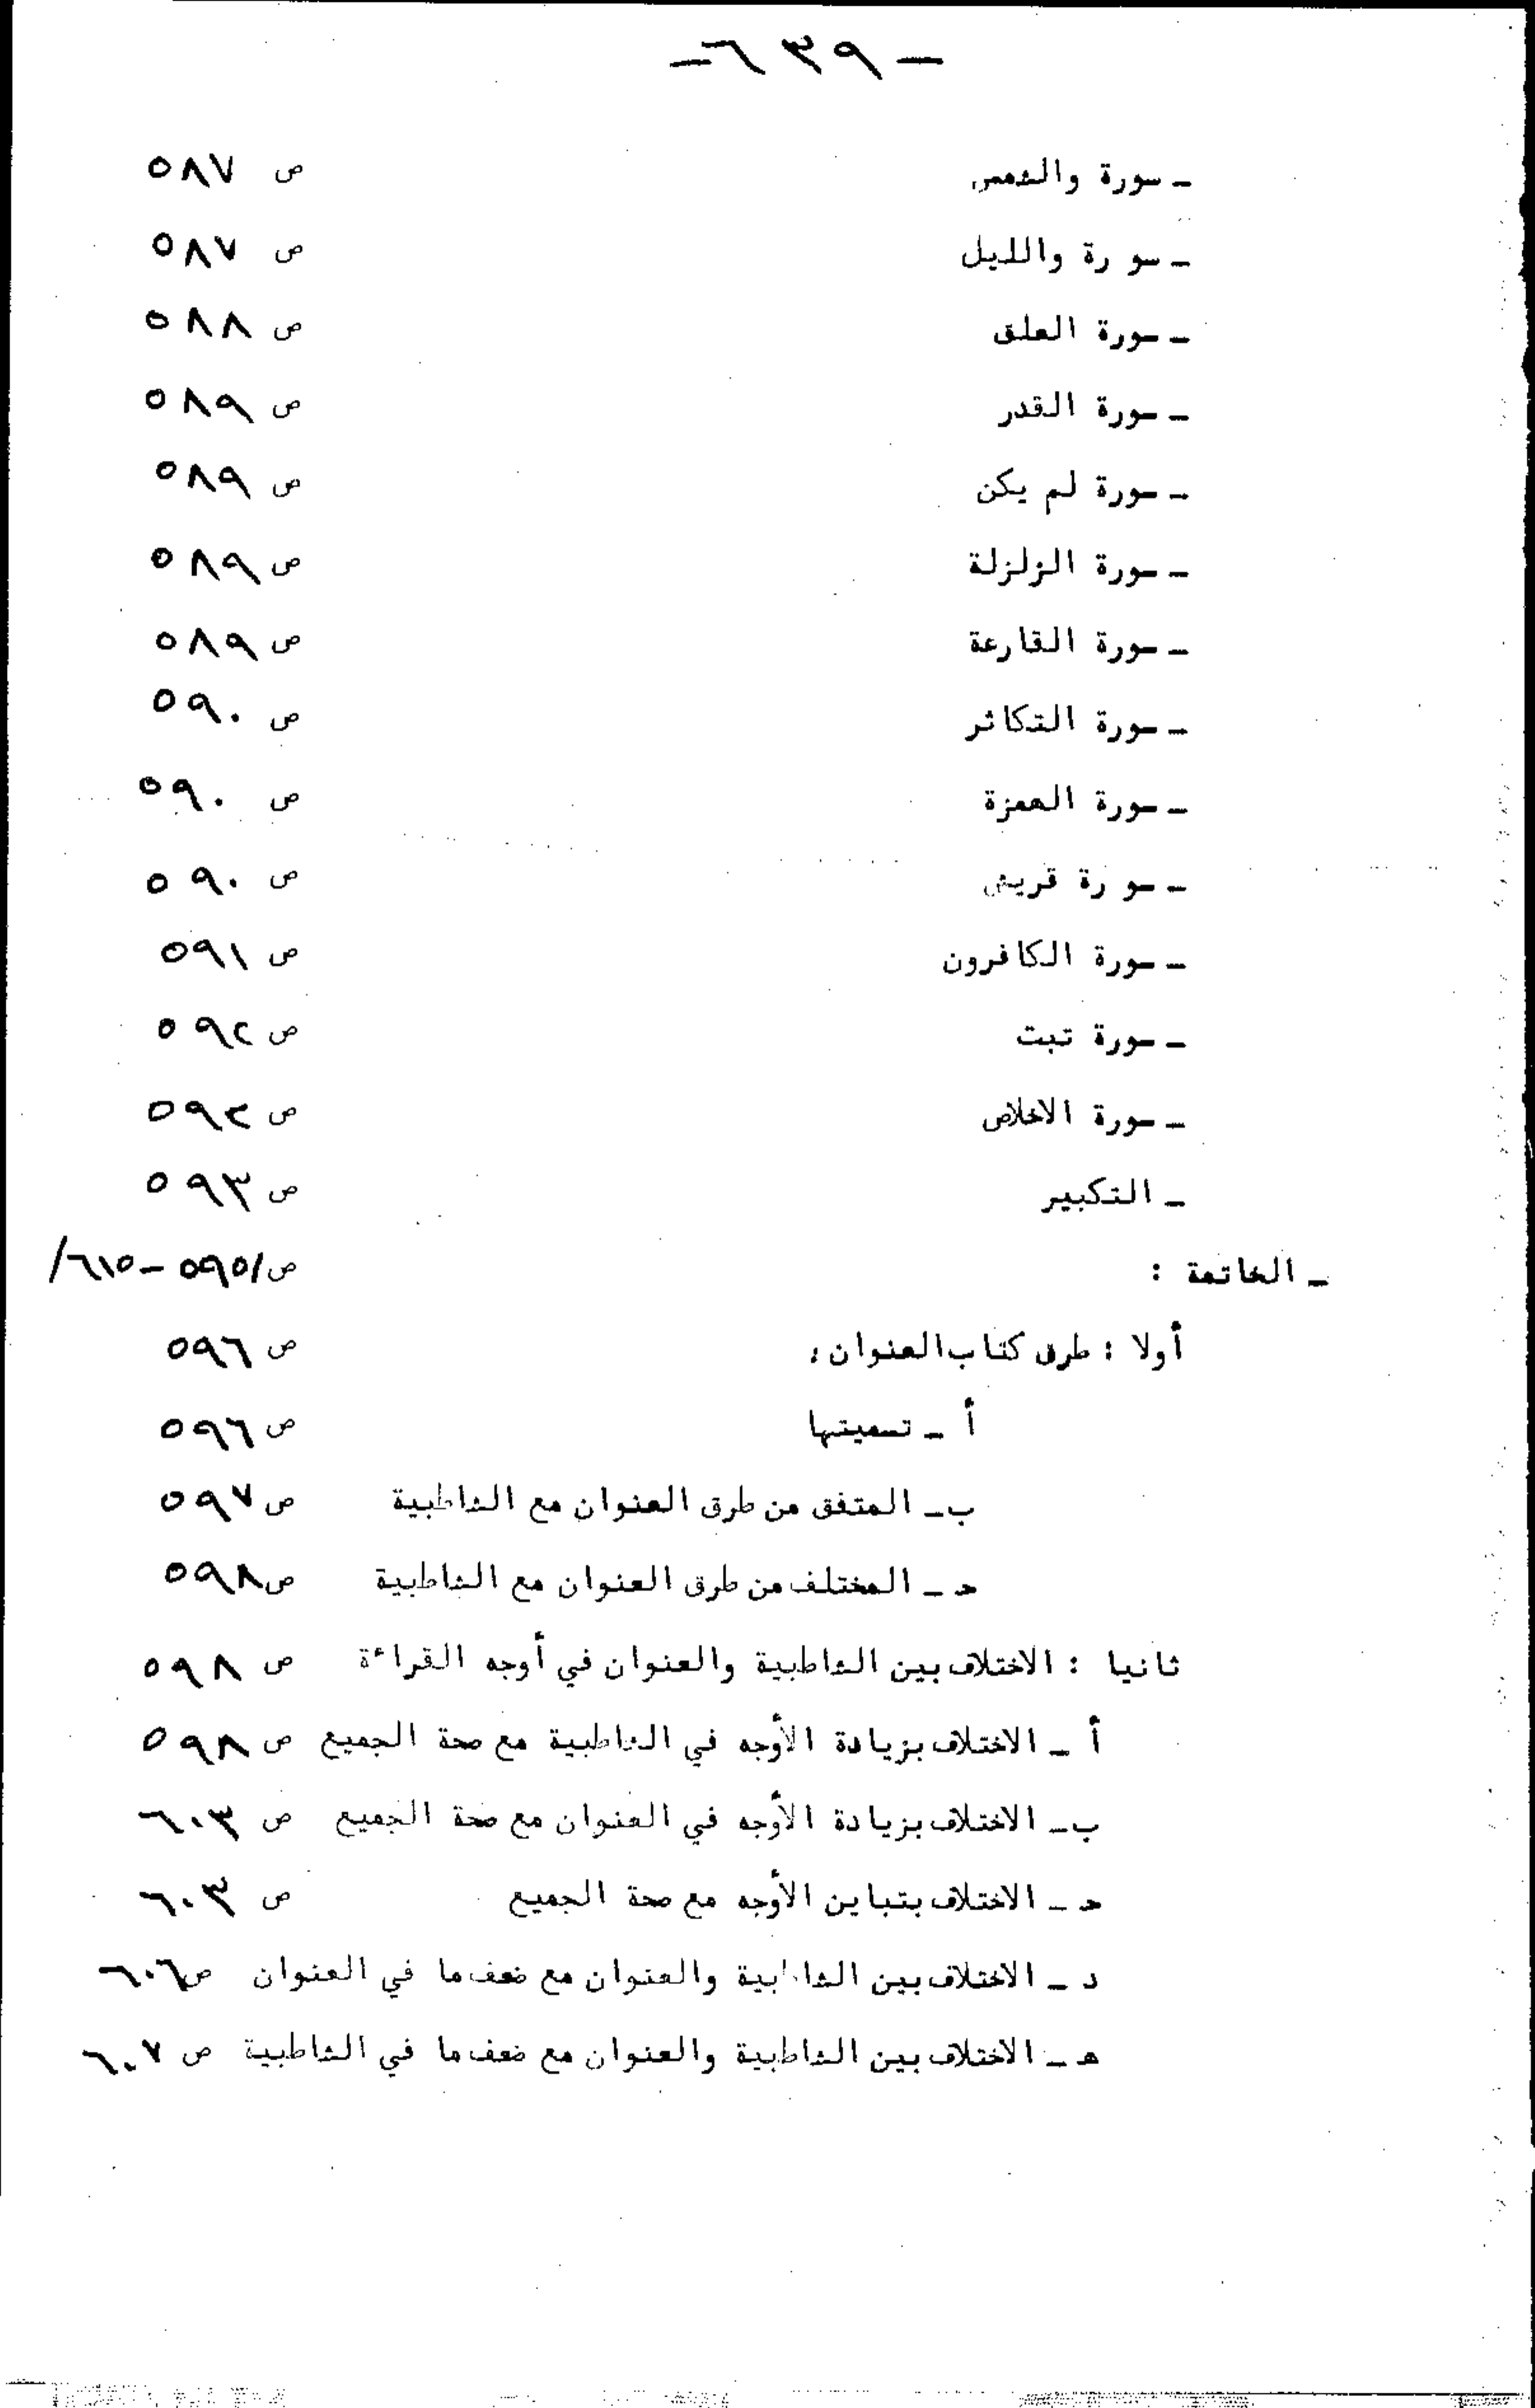 - ٦٣٩ -
- سورة والشمس ص ٥٨٧
- سورة والليل ص ٥٨٧
- سورة العلق ص ٥٨٨
- سورة القدر ص ٥٨٩
- سورة لم يكن ص ٥٨٩
- سورة الزلزلة ص ٥٨٩
- سورة القارعة ص ٥٨٩
- سورة التكاثر ص ٥٩٠
- سورة الهمزة ص ٥٩٠
- سورة قريش ص ٥٩٠
- سورة الكافرون ص ٥٩١
- سورة تبت ص ٥٩٢
- سورة الاخلاص ص ٥٩٢
- التكبير ص ٥٩٣
- الخاتمة : ص/٥٩٥ - ٦١٥/
أولا : طرق كتاب العنوان :
ص ٥٩٦
أ - تسميتها ص ٥٩٦
ب - المتفق من طرق العنوان مع الشاطبية ص ٥٩٧
حـ - المختلف من طرق العنوان مع الشاطبية ص ٥٩٨
ثانيا : الاختلاف بين الشاطبية والعنوان في أوجه القراءة ص ٥٩٨
أ - الاختلاف بزيادة الأوجه في الشاطبية مع صحة الجميع ص ٥٩٨
ب - الاختلاف بزيادة الأوجه في العنوان مع صحة الجميع ص ٦٠٣
حـ - الاختلاف بتباين الأوجه مع صحة الجميع ص ٦٠٣
د - الاختلاف بين الشاطبية والعنوان مع ضعف ما في العنوان ص ٦٠٦
هـ - الاختلاف بين الشاطبية والعنوان مع ضعف ما في الشاطبية ص ٦٠٧